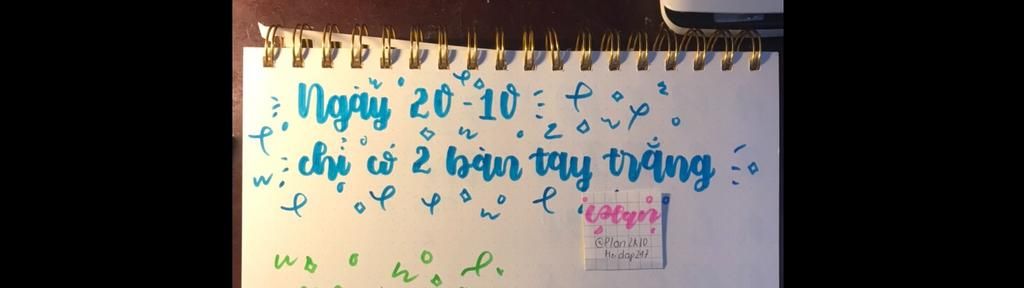 Ngày 20-10
chỉ có 2 bàn tay trắng
@Plan2k10
Hoidap247